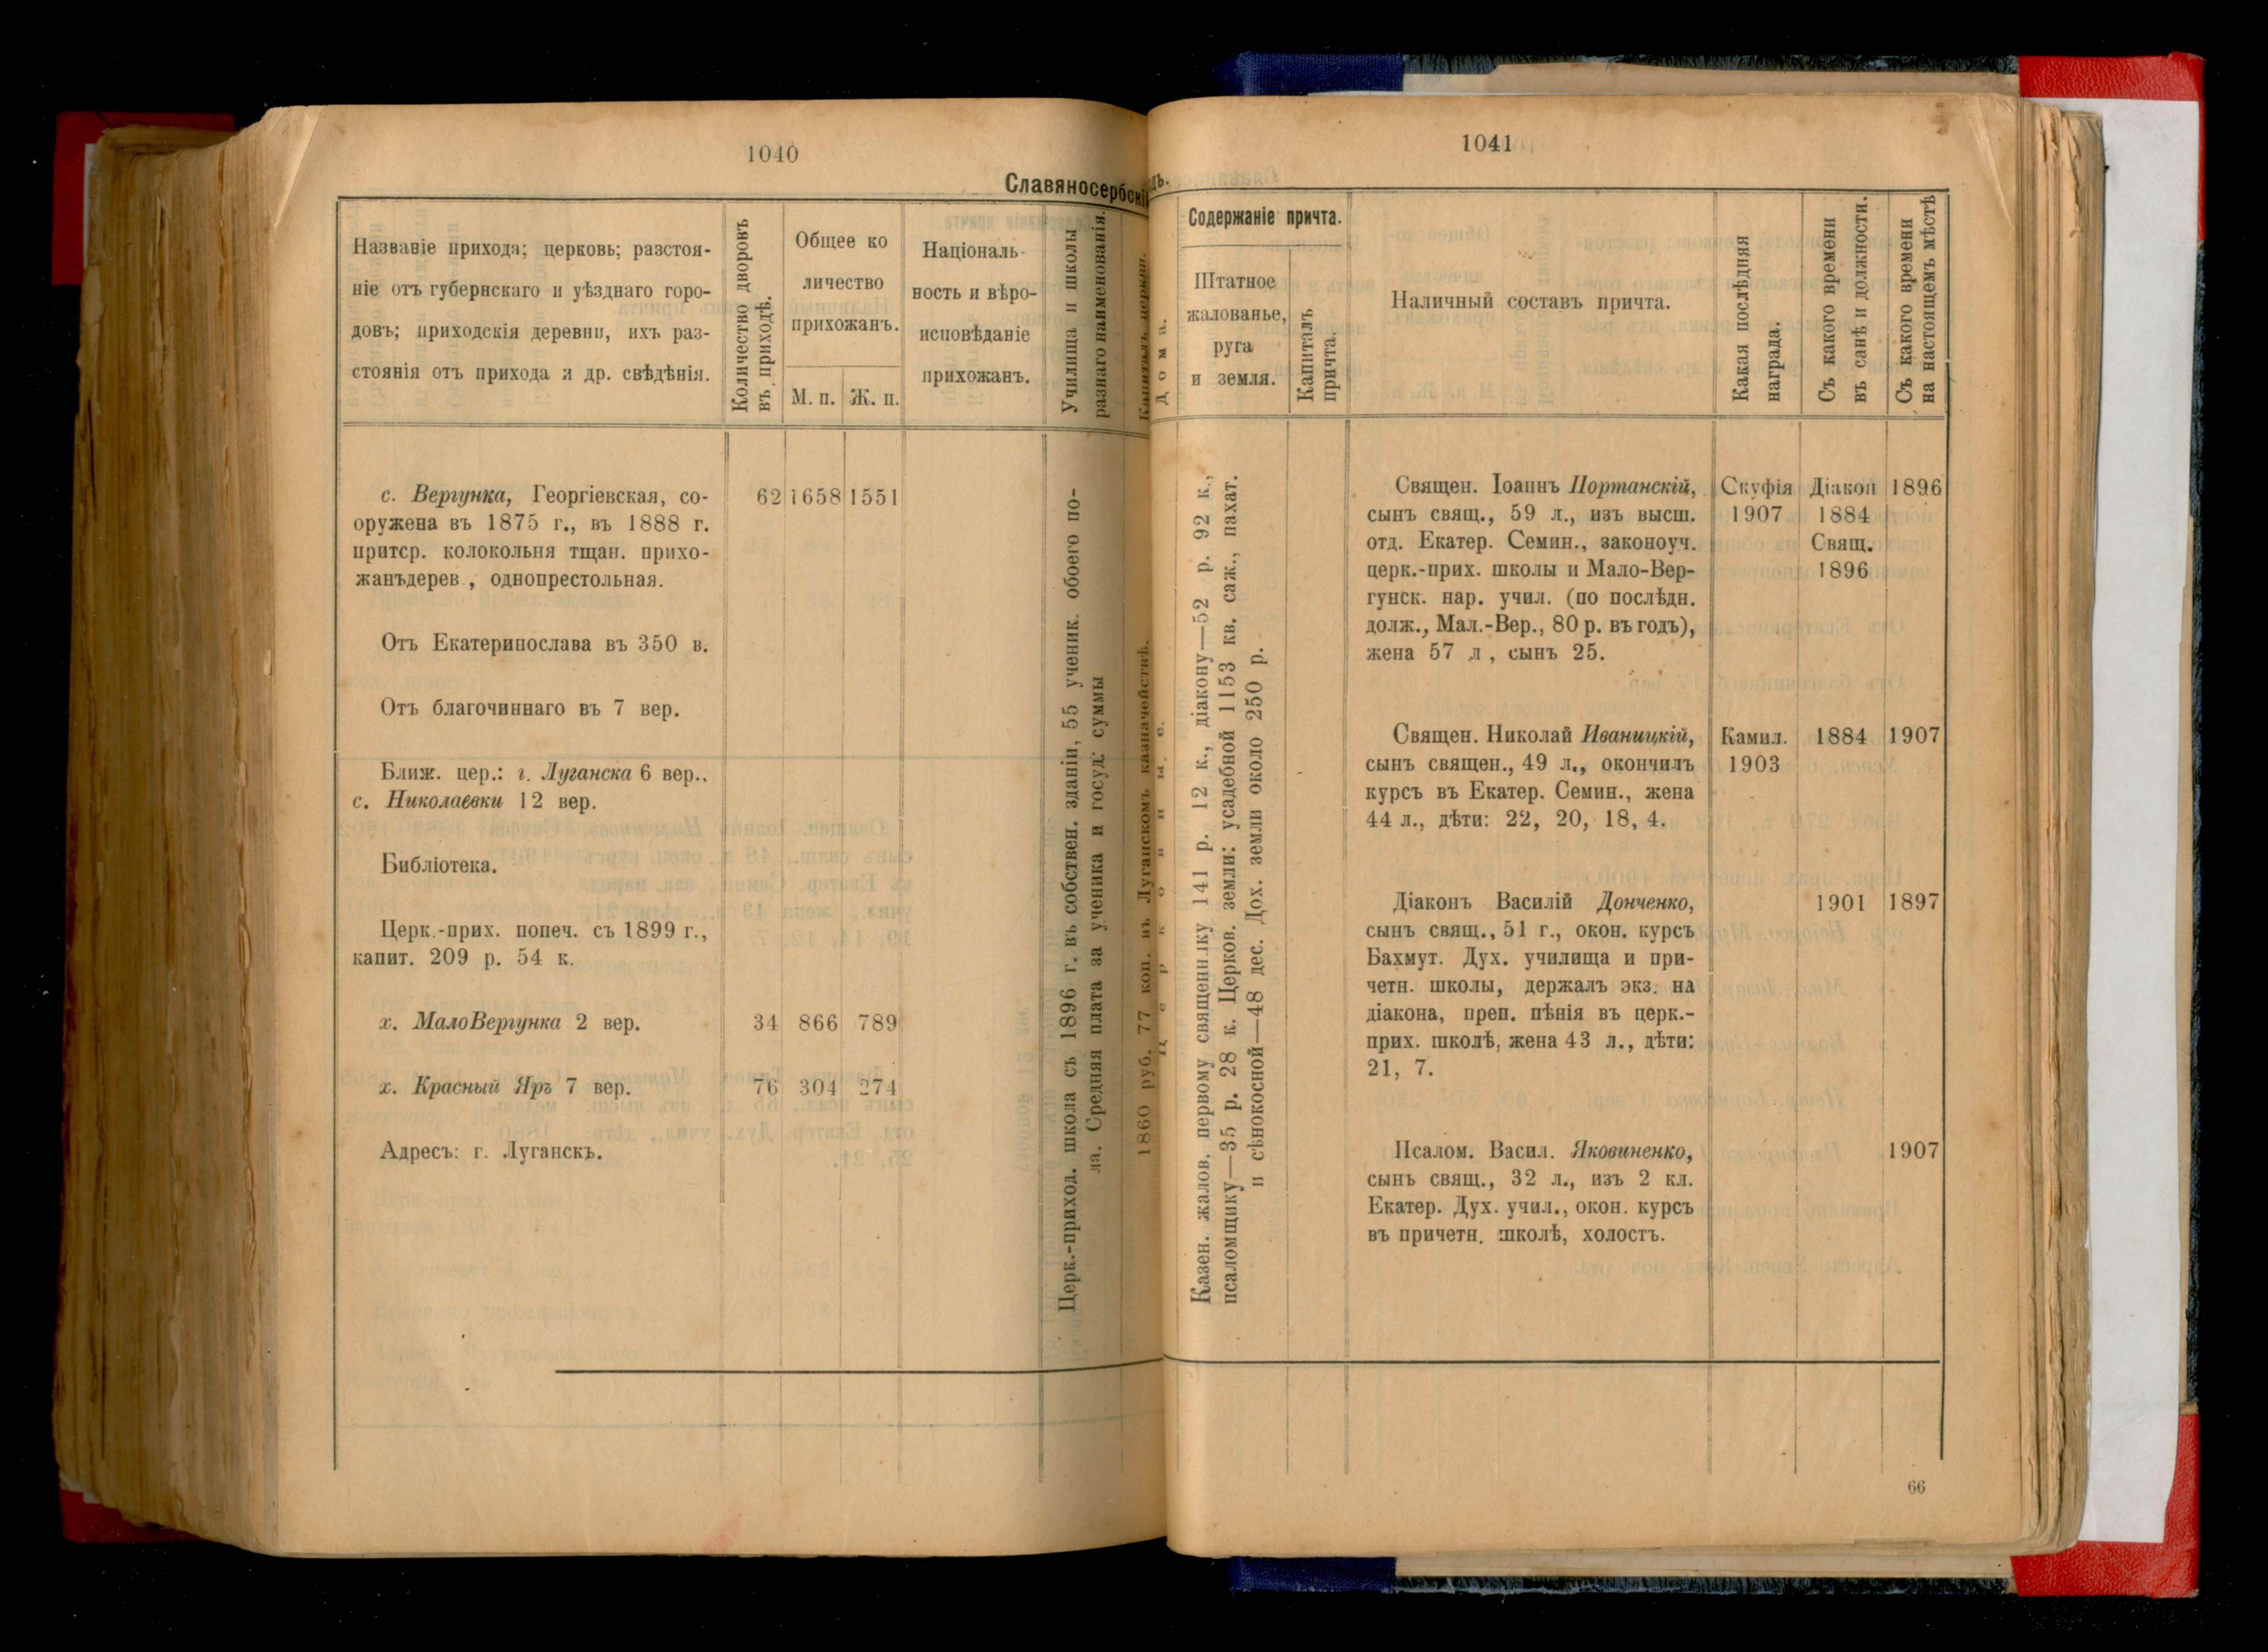 1040
Славяносербскі
Названіе прихода; церковь; разстоя-
ніе отъ губернскаго и уѣзднаго горо-
довъ; приходскія деревни, ихъ раз-
стоянія отъ прихода и др. свѣдѣнія.
Количество дворовъ
въ приходѣ.
Общее ко
личество
прихожанъ.
М. п. Ж. п.
Націоналъ-
ность и вѣро-
исповѣданіе
прихожанъ.
Училища и школы
разнаго наименованія.
Капиталъ церкви.
с. Вергунка, Георгіевская, со- 62 1658 1551
оружена въ 1875 г., въ 1888 г.
притср. колокольня тщан. прихо-
жанъдерев , однопрестольная.
Отъ Екатеринослава въ 350 в.
Отъ благочиннаго въ 7 вер.
Ближ. цер.: г. Луганска 6 вер..
с. Николаевки 12 вер.
Библіотека.
Церк.-прих. попеч. съ 1899 г.,
капит. 209 р. 54 к.
х. МалоВергунка 2 вер. 34 866 789
х. Красный Яръ 7 вер. 76 304 274
Адресъ: г. Луганскъ.
Церк.-приход. школа съ 1896 г. въ собствен. зданіи, 55 ученик. обоего по-
ла. Средняя плата за ученика и госуд. суммы
1860 руб. 77 коп. въ Луганскомъ казначействѣ.
1041
дъ.
Дома.
Содержаніе причта.
Штатное
жалованье,
руга
и земля.
Капиталъ
причта.
Наличный составъ причта.
Какая послѣдняя
награда.
Съ какого времени
въ санѣ и должности.
Съ какого времени
на настоящемъ мѣстѣ
Церковные.
Казен. жалов. первому священнику 141 р. 12 к., діакону—52 р. 92 к.,
псаломщику—35 р. 28 к. Церков. земли: усадебной 1153 кв. саж., пахат.
и сѣнокосной—48 дес. Дох. земли около 250 р.
Священ. Іоаннъ Портанскій, Скуфія Діакон 1896
сынъ свящ., 59 л., изъ высш. 1907 1884
отд. Екатер. Семин., законоуч. Свящ.
церк.-прих. школы и Мало-Вер- 1896
гунск. нар. учил. (по послѣдн.
долж., Мал.-Вер., 80 р. въ годъ),
жена 57 л , сынъ 25.
Священ. Николай Иваницкій, Камил. 1884 1907
сынъ священ., 49 л., окончилъ 1903
курсъ въ Екатер. Семин., жена
44 л., дѣти: 22, 20, 18, 4.
Діаконъ Василій Донченко, 1901 1897
сынъ свящ., 51 г., окон. курсъ
Бахмут. Дух. училища и при-
четн. школы, держалъ экз. на
діакона, преп. пѣнія въ церк.-
прих. школѣ, жена 43 л., дѣти:
21, 7.
Псалом. Васил. Яковиненко, 1907
сынъ свящ., 32 л., изъ 2 кл.
Екатер. Дух. учил., окон. курсъ
въ причетн. школѣ, холостъ.
66